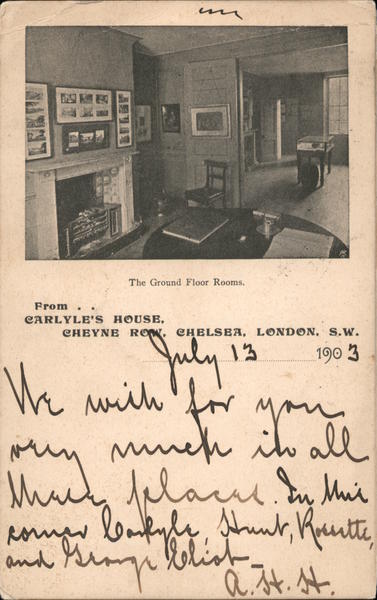 The Ground Floor Rooms.
From . .
CARLYLE'S HOUSE,
CHEYNE ROW, CHELSEA, LONDON, S.W.
July 13 1903
We wish for you
very much in all
these places. In this
corner Carlyle, Hunt, Rossette,
and George Eliot
A. H. H.